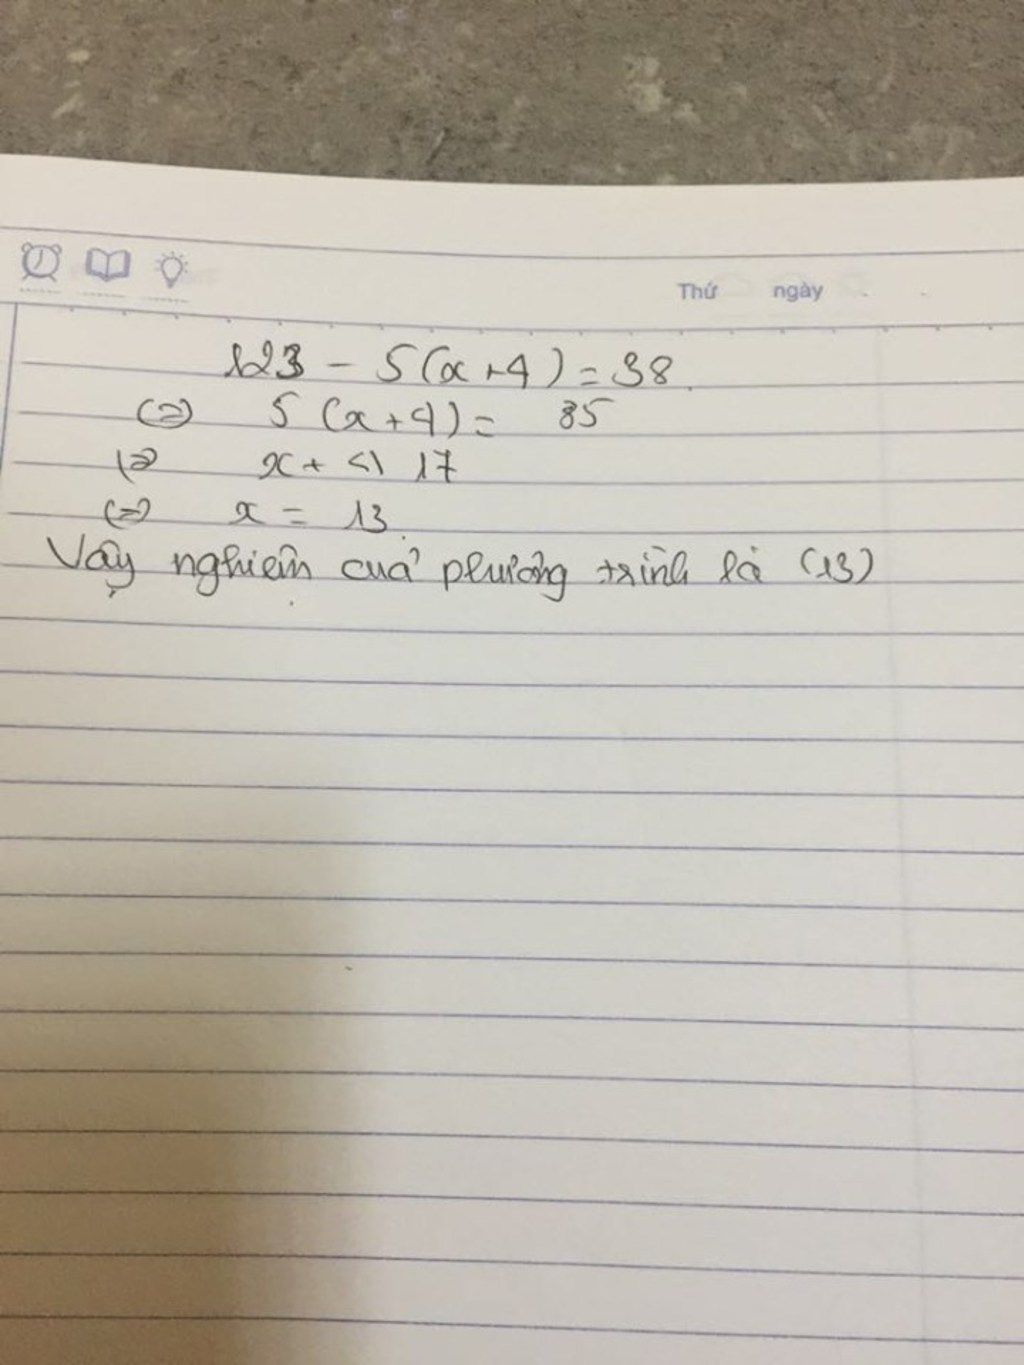 Thứ ngày
123 - 5(x+4) = 38.
(=) 5 (x+4) = 85
(=) x + 4 17
(=) x = 13.
Vậy nghiệm của phương trình là (13)